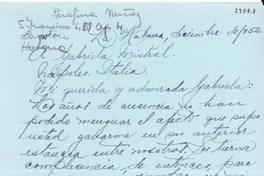 Serafina Núñez
La Habana, diciembre de 1952.
A Gabriela Mistral.
Nápoles. Italia.
Mi querida y admirada Gabriela:
Los años de ausencia no han
podido menguar el afecto que supo
usted ganarme en su anterior
estancia entre nosotros. Su tierna
complacencia, de entonces para